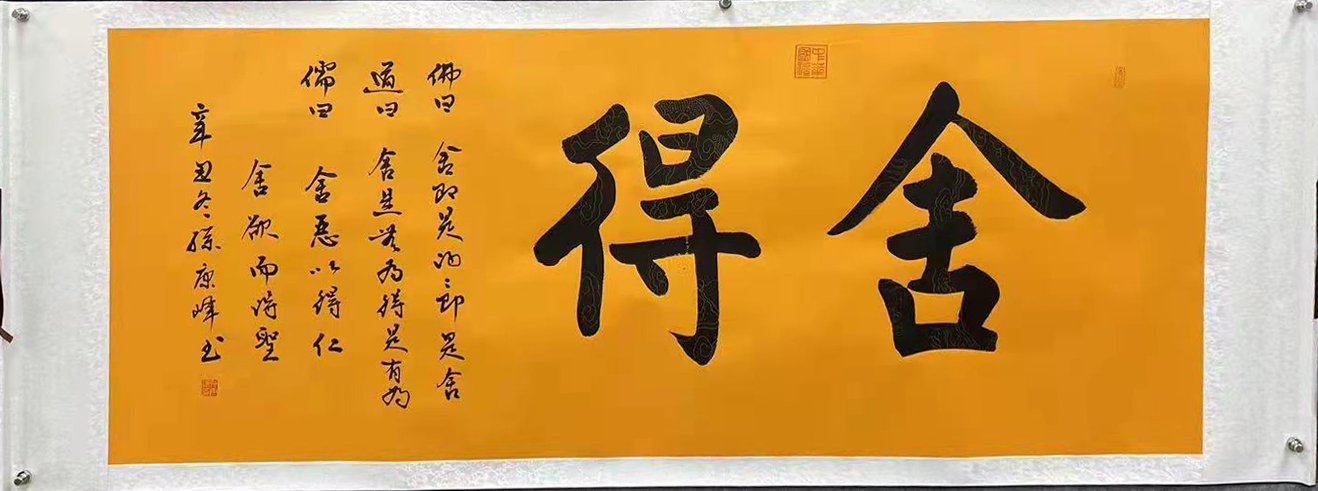 舍得
佛曰 舍即是得得即是舍
道曰 舍是无为得是有为
儒曰 舍恶以得仁
舍欲而得圣
辛丑冬孙康峰书